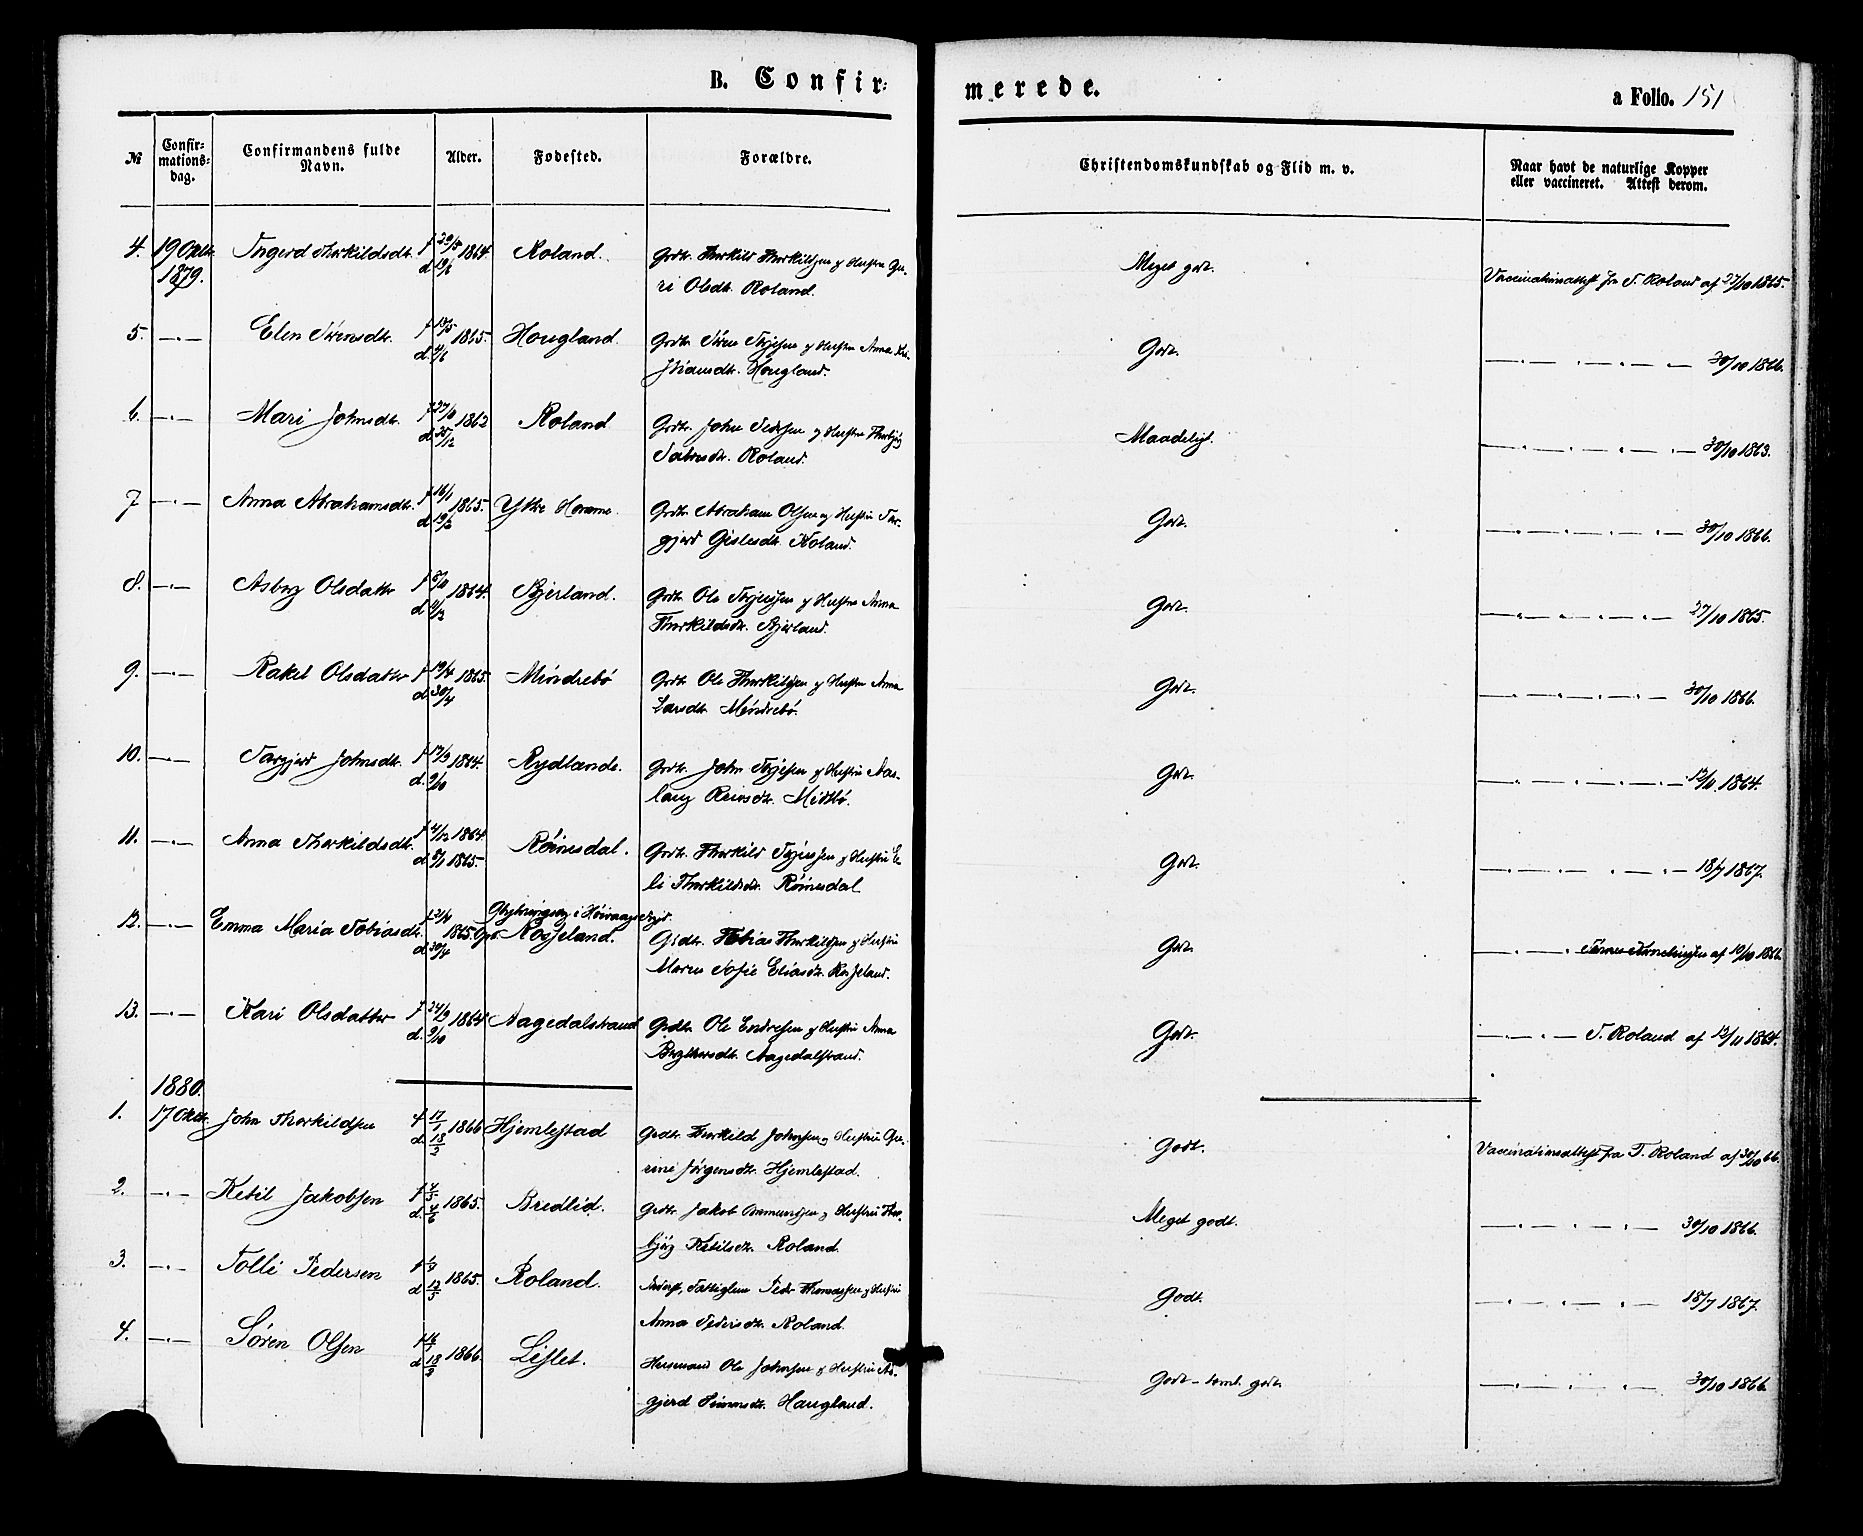 B. Confir=
merede.
a Folio. 151
№
Confir=
mations=
dag.
Confirmandens fulde
Navn.
Alder.
Fødested.
Forældre.
Christendomskundskab og Flid m. v.
Naar havt de naturlige Kopper
eller vaccineret. Attest derom.
4. 19 Oktbr. Ingerd Thorkildsdtr. f 1864. Roland. Grdbr. Thorkild Thorkildsen og Hustru Gu-
1879. d ri Olsdtr. Roland.
Meget godt. Vaccinationsattest fra T. Roland af 27/10 1865.
5. —"— Elen Sørensdtr. f 1865. Hougland. Grdbr. Søren Terjesen og Hustru Anna Kri-
d. stiansdtr. Hougland.
Godt. —"—"— 30/10 1866.
6. —"— Mari Johnsdtr. f 1862 Roland Grdbr. John og Hustru Thorbjør
d Roland.
Maadeligt. —"—"— 30/10 1863.
7 —"— Anna Abrahamsdtr. f 16/1 1865. Ytre Homme. Grdbr. Abraham Olsen og Hustru Tar-
d gjerd Gislesdtr. Roland.
Godt. —"—"— 30/10 1866.
8. —"— Asborg Olsdatter f 1864. Bjerland. Grdbr. Ole Terjesen og Hustru Anna
d Thorkildsdtr. Bjerland.
Godt. —"—"— 27/10 1865.
9. —"— Rakel Olsdatter f 19/4 1865. Mindrebø Grdbr. Ole Thorkildsen og Hustru Anna
d. 30/4 Larsdtr. Mindrebø.
Godt. —"—"— 30/10 1866.
10. —"— Targjerd Johnsdtr. f 1864. Rydlande. Grdbr. John Terjesen og Hustru Aas-
d. 9/10 laug Reiersdtr.
Godt. —"—"— 12/11 1864.
11. —"— Anna Thorkildsdtr. f 1864 Røinesdal. Grdbr. Thorkild Terjesen og Hustru E-
d 1865. li Thorkildsdtr. Røinesdal
Godt. —"—"— 18/7 1867.
12. —"— Emma Maria Tobiasdtr. f 1865. i Høivaag Rosseland. Grdbr. Tobias Thorkildsen og Hustru
d 30/4 Maren Sofie Eliasdtr. Rosseland.
Godt. —"—"— af 10/10 1866.
13. —"— Kari Olsdatter f 24/9 1864. Aagedalstrand Grdbr. Ole Endresen og Hustru Anna
d. 9/10 Aagedalstrand.
Godt. —"—"— T. Roland af 12/11 1864.
1880.
1. 17 Oktbr. John Thorkildsen f 17/1 1866 Hjemlestad Grdbr. Thorkild Johnsen og Hustru Gu-
d. 18/3 rine Jørgensdtr. Hjemlestad.
Godt. Vaccinationsattest fra T. Roland af 30/10 66.
2. —"— Ketil Jakobsen f 1865. Bredlid. Grdbr. Jakob og Hustru Thor-
d. 4/6 bjørg Ketilsdtr. Roland.
Meget godt. —"—"— 30/10 1866.
3. —"— Tolli Pedersen f 1865. Roland. Inderst, Peder Thomassen og Hustru
d Anna Pedersdtr. Roland.
Godt. —"—"— 18/7 1867.
4. —"— Søren Olsen f 1866. Lislet. Husmand Ole Johnsen og Hustru As-
d 18/3 gjerd Haugland.
Godt - teml. godt. —"—"— 30/10 1866.